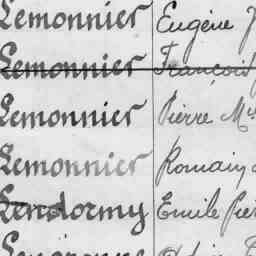 Lemonnier Eugène
Lemonnier François
Lemonnier Pierre M
Lemonnier Romain
Lendormy Emile Pier